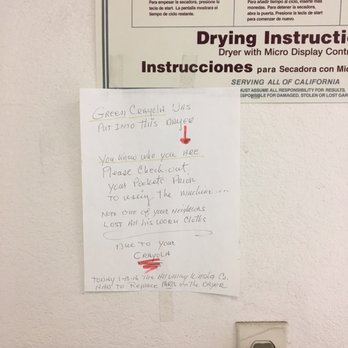 Para empezar el secado, presione la
tecla de start. La pantalla mostrará el
tiempo de ciclo restante.
Para añadir tiempo al secado, inserte más
monedas. Para detener la secadora,
presione la tecla de start para
comenzar de nuevo.
Drying Instructi
Dryer with Micro Display Contr
Instrucciones para Secadora con Mi
SERVING ALL OF CALIFORNIA
MUST ASSUME ALL RESPONSIBILITY FOR RESULTS.
RESPONSIBLE FOR DAMAGED, STOLEN OR LOST GAR
GREEN CRAYOLA WAS
PUT INTO THIS DRYER
YOU KNOW WHO YOU ARE
Please Check-out
Your Pockets Prior
To using The machine...
Now one of your Neighbors
LOST All his WORK CLOTHS
Due to your
CRAYOLA
TODAY 1-13-16 THE
HAD TO Replace PARTS on the DRYER